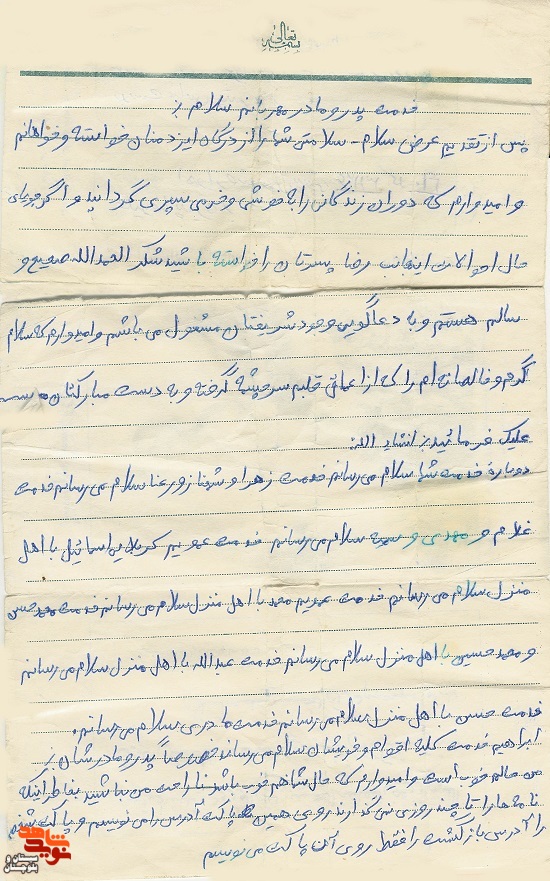 بسمه تعالی
خدمت پدر و مادر مهربانم سلام
پس از تقدیم عرض سلام - سلامتی شما را از درگاه ایزد منان خواسته و خواهانم
و امیدوارم که دوران زندگانی را با خوشی و خرمی سپری گردانید و اگر جویای
حال احوالات اینجانب رضا پسرتان را خواسته باشید شکر الحمدالله صحیح و
سالم هستم و به دعاگویی وجود شریفتان مشغول می باشم و امیدوارم که سلام
گرم و خالصانه ام را که از اعماق قلبم سرچشمه گرفته و به دست مبارکتان
علیک فرمائید انشاء الله
دوباره خدمت شما سلام می رسانم خدمت زهرا و سلام می رسانم خدمت
غلام و مهدی و سمیه سلام می رسانم خدمت عمویم کربلایی اسمائیل با اهل
منزل سلام می رسانم خدمت عمویم محمد با اهل منزل سلام می رسانم خدمت محمد حسن
و محمد حسین با اهل منزل سلام می رسانم خدمت عبدالله با اهل منزل سلام می رسانم
خدمت حسن با اهل منزل سلام می رسانم خدمت سلام می رسانم.
ابراهیم خدمت کلیه اقوام و خویشان سلام می رساند خصوصاً پدر و مادرشان
من حالم خوب است و امیدوارم که حال شما هم خوب باشد ناراحت من نباشید بخاطر اینکه
نامه ها را تا چند روزی نمی گذارند روی همین پاکت آدرس را می نویسم و پاکت
را آدرس بازگشت را فقط روی آن پاکت می نویسم
نوید شاهد
سیستان و بلوچستان